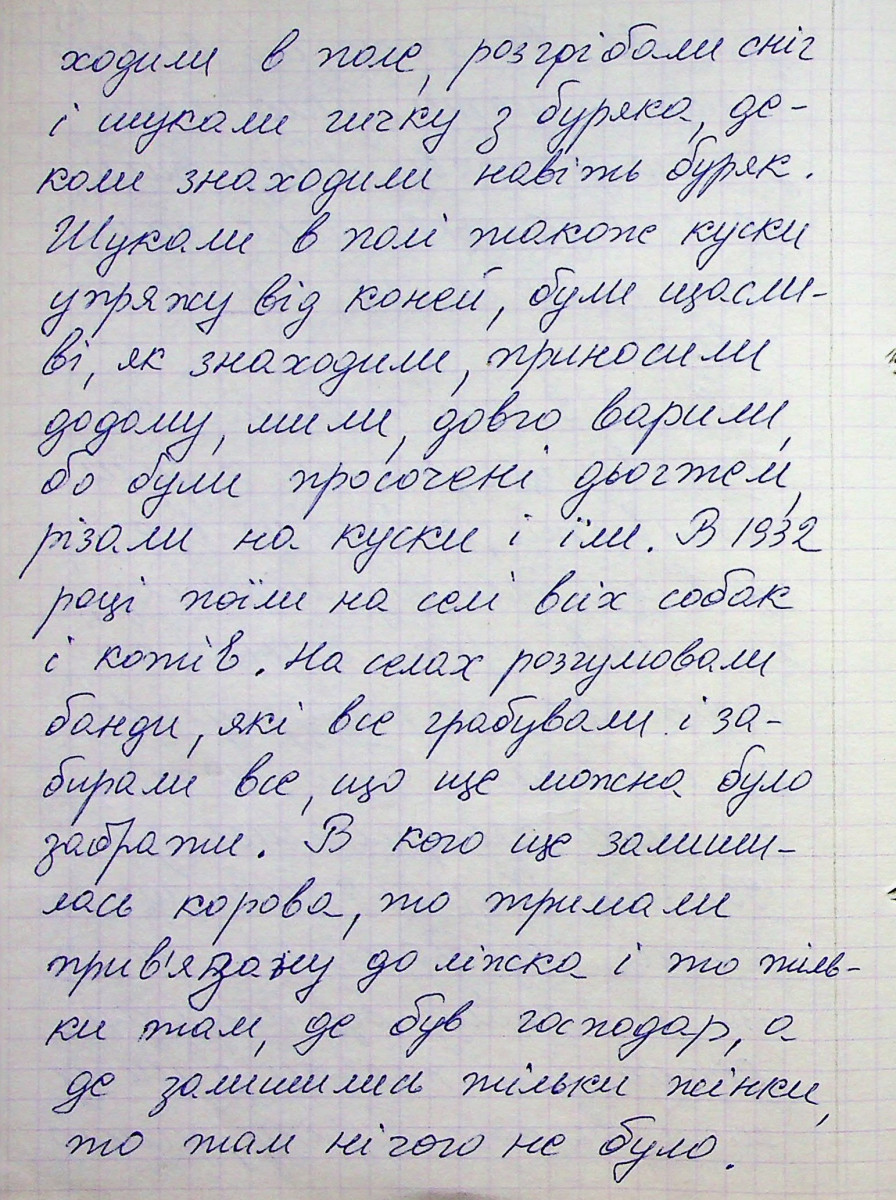 ходили в поле, розгрібали сніг
і шукали гичку з буряка, де-
коли знаходили навіть буряк.
Шукали в полі також куски
упряжу від коней, були щасли-
ві, як знаходили, приносили
додому, мили, довго варили,
бо були просочені дьогтем,
різали на куски і їли. В 1932
році поїли на селі всіх собак
і котів. На селах розгулювали
банди, які все грабували і за-
бирали все, що ще можна було
забрати. В кого ще залиши-
лась корова, то тримали
прив'язану до ліжка і то тіль-
ки там, де був господар, а
де залишились тільки жінки,
то там нічого не було.